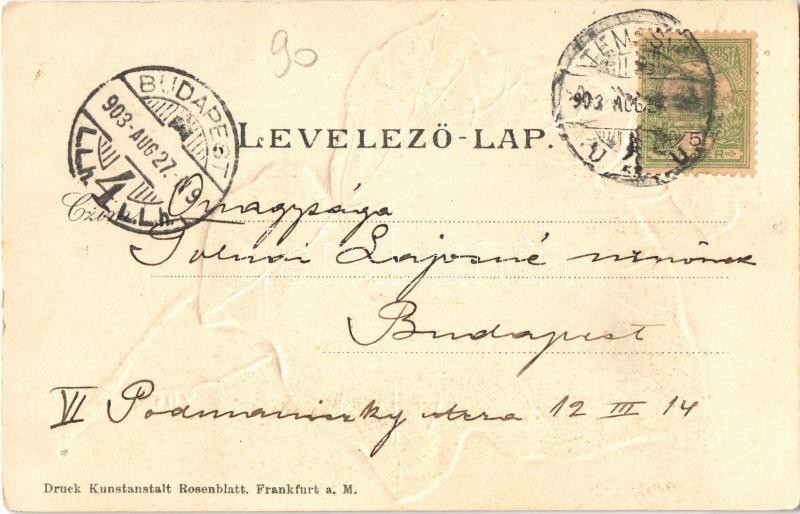 90
TEMES
903 AUG 2
POSTA
BUDAPEST
903-AUG 27.
4
LEVELEZŐ-LAP.
Czím:
Őnagysága
Tolnai Lajosné urnőnek
Budapest
VI Podmaniczky utcza 12 III 14
Druck Kunstanstalt Rosenblatt. Frankfurt a. M.